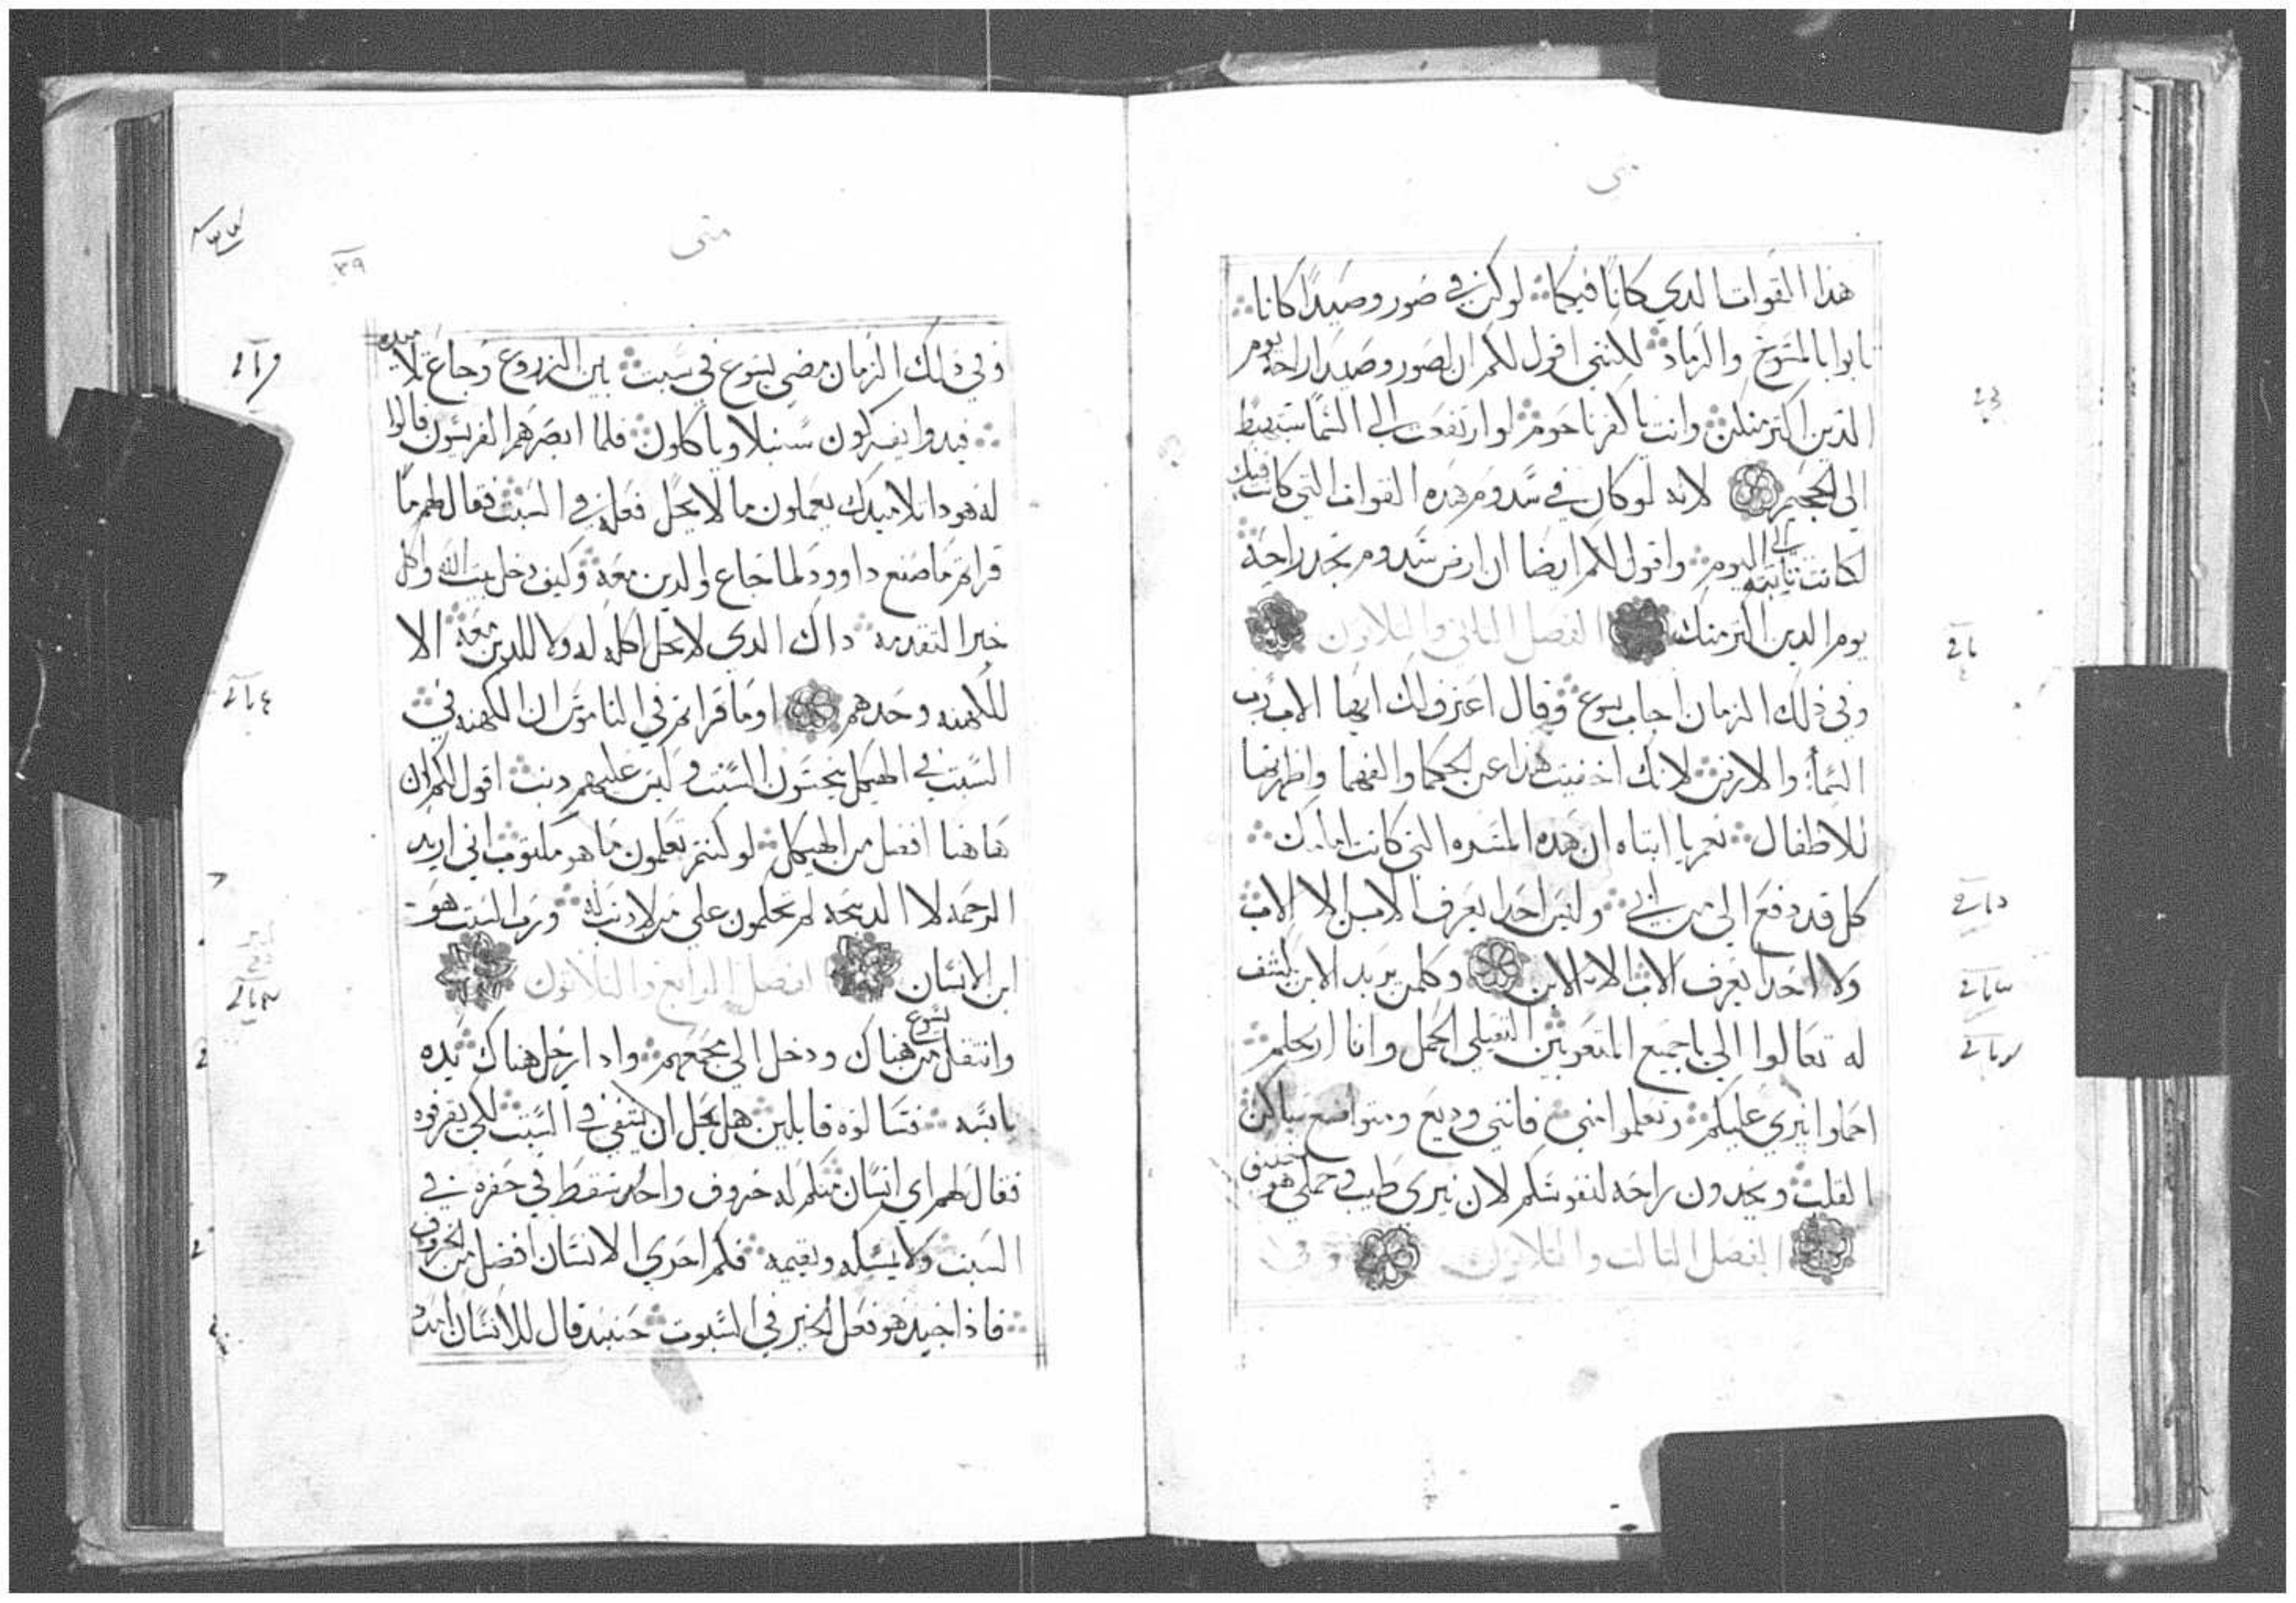 متى
هذا القوات الدي كانا فيكما لو كن في صور وصيدا كانا
تابوا بالمسوح والرماد لكنني اقول لكم ان لصور وصيدا راحه يوم
الدين اكتر منكن وانت يا كفرناحوم لو ارتفعت الى السما ستهبط
الى الجحيم لانه لو كان في سدوم هده القوات التي كانت فيك
لكانت تابته الى اليوم واقول لكم ايضا ان ارض سدوم تجد راحه
يوم الدين اكتر منك الفصل التاني والتلاتون
وفي ذلك الزمان اجاب يسوع وقال اعترف لك ايها الاب رب
السما والارض لانك اخفيت هذا عن الحكما والفهما واظهرتها
للاطفال نعم يا ابتاه ان هده المسره التي كانت امامك
كل قد دفع الي من ابي وليس احدا يعرف الابن الا الاب
ولا احدا يعرف الاب الا الابن وكلمن يريد الابن يكشف
له تعالوا الي يا جميع المتعوبين التقيلي الحمل وانا اريحكم
احملوا نيري عليكم وتعلموا مني فانني وديع ومتواضع ساكن
القلب وتجدون راحه لنفوسكم لان نيري طيب وحملي هو خفيف
الفصل التالت والتلاتون وفي
متى
٣٩
وفي ذلك الزمان مضى يسوع في سبت بين الزروع وجاع تلاميده
فبدوا يفركون سنبلا وياكلون فلما ابصرهم الفريسون قالوا
له هودا تلاميدك يعملون ما لا يحل فعله في السبت فقال لهم ما
قراتم ما صنع داوود لما جاع والدين معه وكيف دخل بيت الله واكل
خبز التقدمه داك الدي لا يحل اكله له ولا للدين معه الا
للكهنه وحدهم او ما قراتم في الناموس ان الكهنه في
السبت في الهيكل ينجسون السبت وليس عليهم دنب اقول لكم ان
هاهنا افضل من الهيكل لو كنتم تعلمون ما هو مكتوب اني اريد
الرحمه لا الدبيحه لم تحكمون على من لا دنب له ورب السبت هو
ابن الانسان الفصل الرابع والتلاتون
وانتقل يسوع من هناك ودخل الى مجمعهم وادا رجل هناك يده
يابسه فسالوه قايلين هل يحل ان يشفى في السبت لكي يقرفوه
فقال لهم اي انسان منكم له خروف واحد يسقط في حفره في
السبت ولا يمسكه ويقيمه فكم احري الانسان افضل من الخروف
فاذا جيد هو فعل الخير في السبوت حينيد قال للانسان امدد